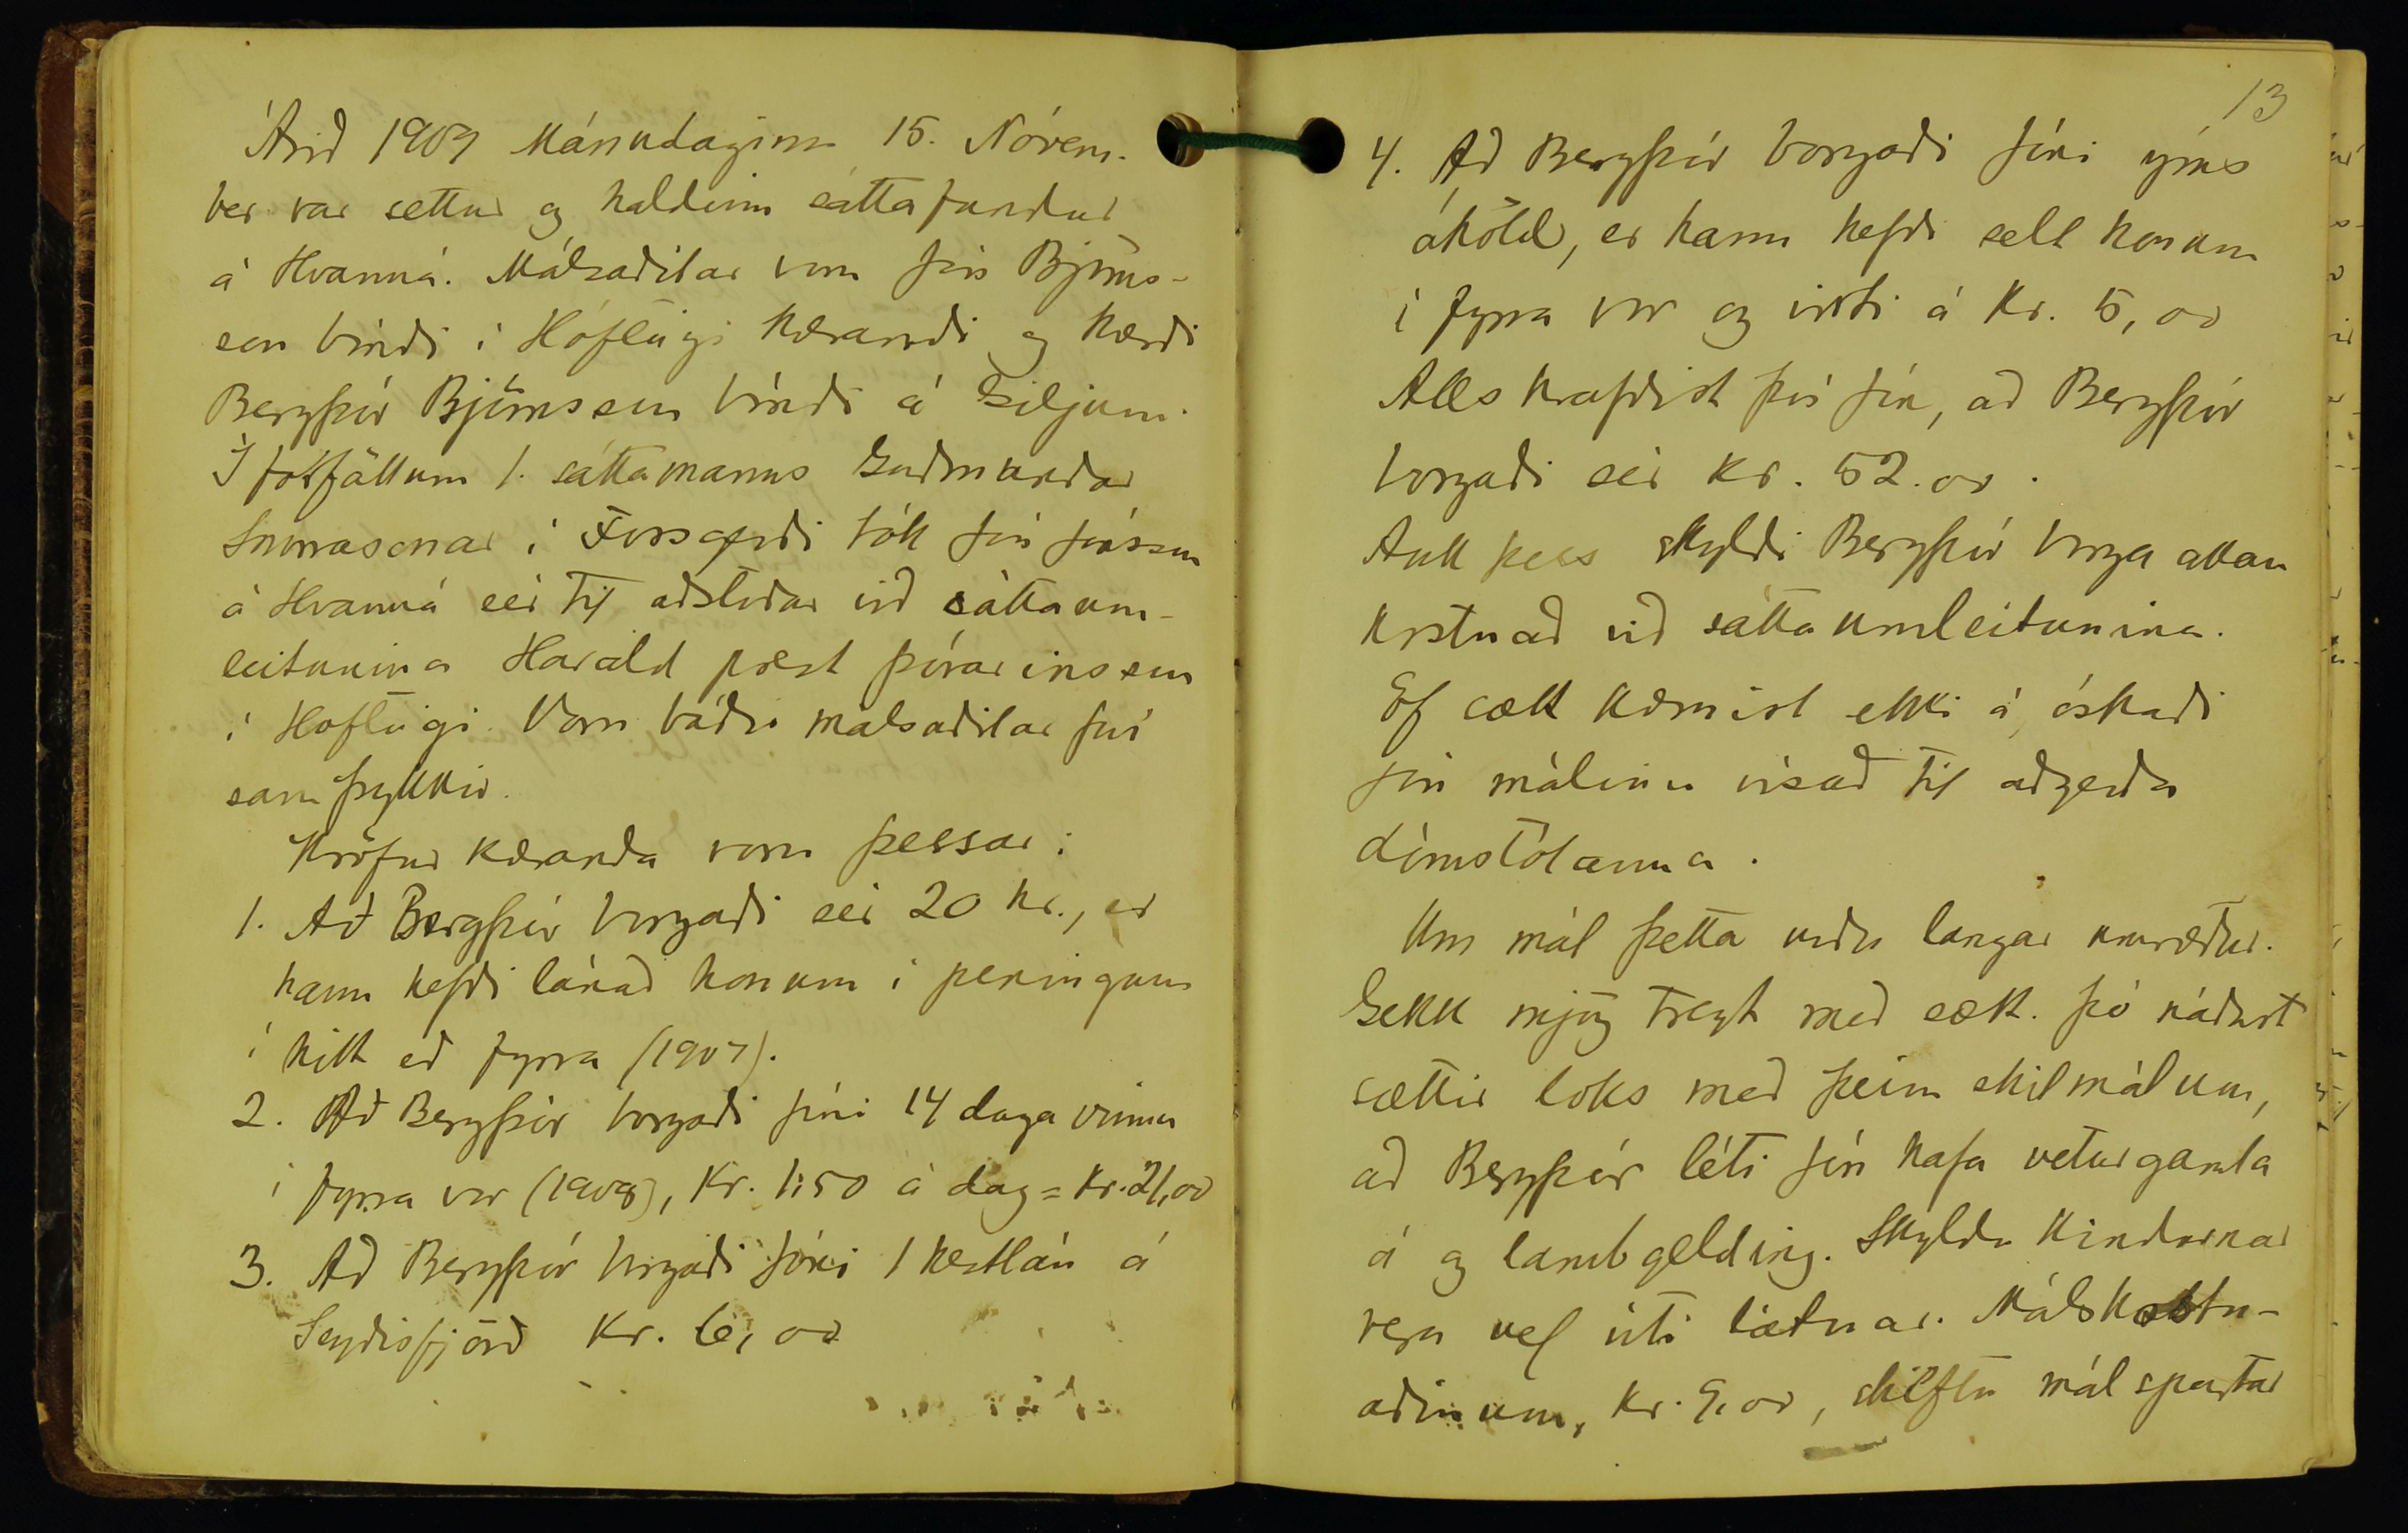 Árið 1909 Mánudaginn 15. Nóvem-
ber var settur og haldinn sáttafundur
á Hvanná. Málsaðilar voru Jón Björns-
son bóndi í Hofteigi kærandi og kærði
Bergþór Björnsson bóndi á Giljum.
Í forföllum 1. sáttamanns Guðmundar
Snorrasonar í Fossgerði tók Jón Jónsson
á Hvanná sér til aðstoðar við sáttaum-
leitunina Harald prest Þórarinsson
í Hofteigi. Voru báðir málsaðilar því
samþykkir.
Kröfur kæranda voru þessar:
1. Að Bergþór borgaði sér 20 kr., er
hann hefði lánað honum í peningum
í hitt eð fyrra (1907).
2. Að Bergþór borgaði Jóni 14 daga vinnu
í fyrra vor (1908), Kr. 1:50 á dag = Kr. 21,00
3. Að Bergþór borgaði Jóni 1 hestlán á
Seyðisfjörð Kr. 6,00
13
4. Að Bergþór borgaði Jóni ýms
áhöld, er hann hefði selt honum
í fyrra vor og virti á Kr. 5,00
Alls krafðist því Jón, að Bergþór
borgaði sér Kr. 52.00.
Auk þess skyldi Bergþór borga allan
kostnað við sáttaumleitunina.
Ef sætt kæmist ekki á, óskaði
Jón málinu vísað til aðgerða
dómstólanna.
Um mál þetta urðu langar umræður.
Gekk mjög tregt með sætt. Þó náðust
sættir loks með þeim skilmálum,
að Bergþór léti Jón hafa veturgamla
á og lambgelding. Skyldu kindurnar
vera vel úti látnar. Málskostn-
aðinum, Kr. 9,00, skiftu málspartar